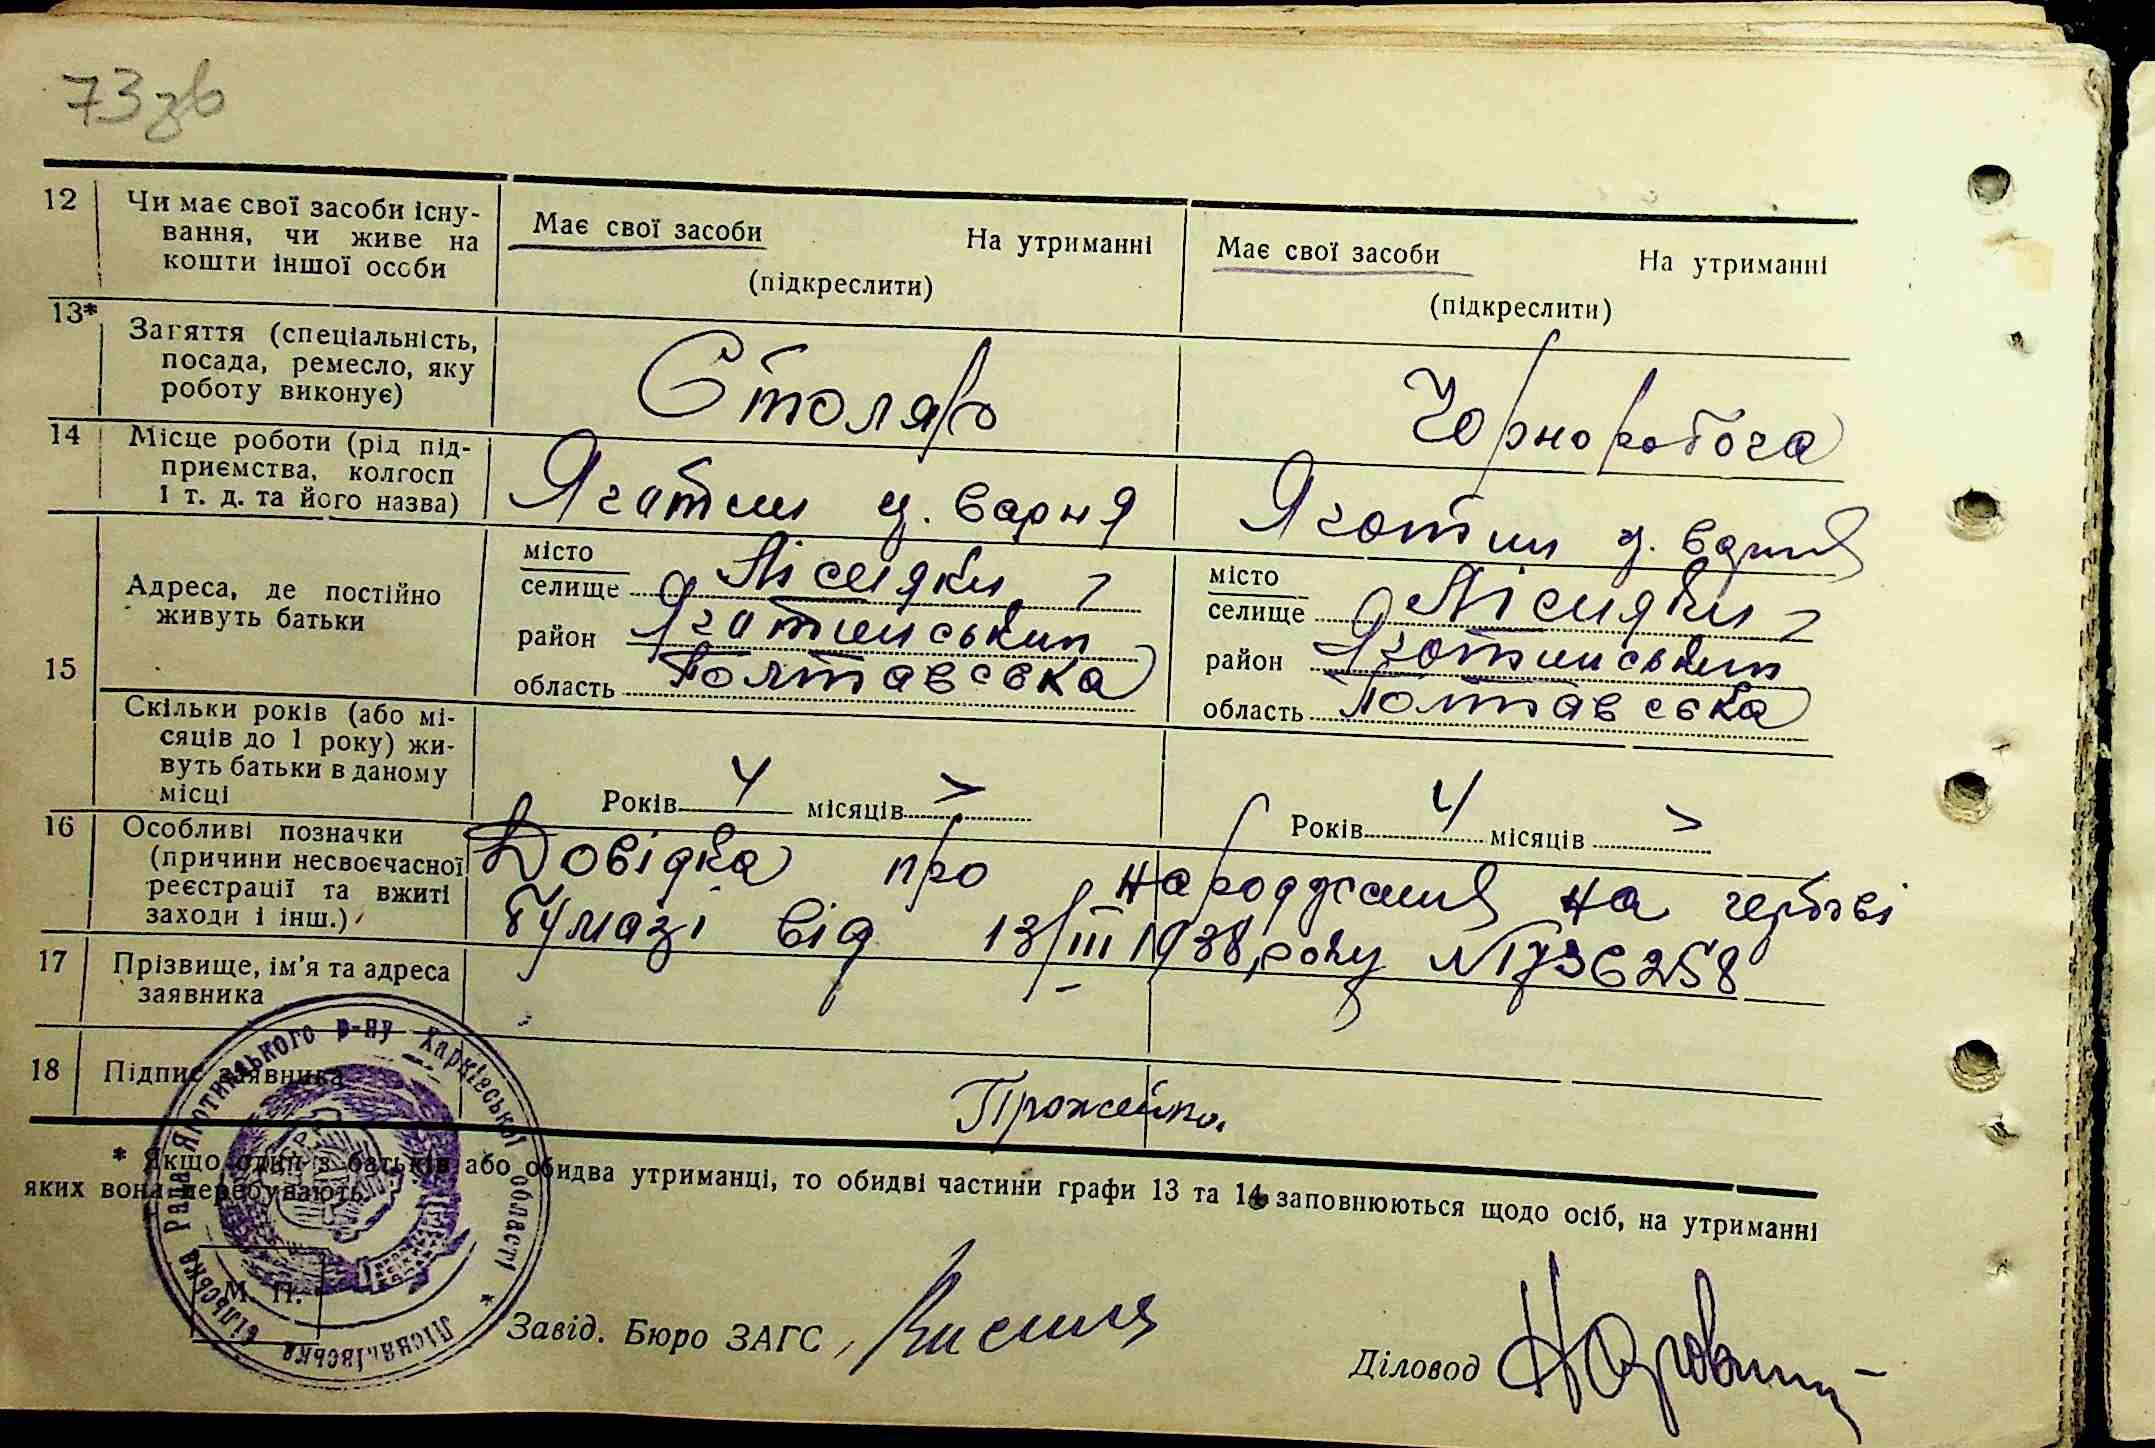 73зв
12 Чи має свої засоби існу-
вання, чи живе на
кошти іншої особи
Має свої засоби На утриманні
(підкреслити)
Має свої засоби На утриманні
(підкреслити)
13* Заняття (спеціальність,
посада, ремесло, яку
роботу виконує)
Столяр
Чорноробоча
14 Місце роботи (рід під-
приємства, колгосп
і т. д. та його назва)
Яготин ц. варня
Яготин ц. варня
15 Адреса, де постійно
живуть батьки
місто
селище Лісняки
район Яготинський
область Полтавська
місто
селище Лісняки
район Яготинський
область Полтавська
Скільки років (або мі-
сяців до 1 року) жи-
вуть батьки в даному
місці
Років 4 місяців
Років 4 місяців
16 Особливі позначки
(причини несвоєчасної
реєстрації та вжиті
заходи і інш.)
Довідка про народження на гербові
бумазі від 13/III 1938 року № 736258
17 Прізвище, ім'я та адреса
заявника
18 Підпис заявника
* Якщо один з батьків або обидва утриманці, то обидві частини графи 13 та 14 заповнюються щодо осіб, на утриманні
яких вони перебувають.
М. П.
Лісняківська сільська Рада Яготинського р-ну Харківської області *
Завід. Бюро ЗАГС
Діловод